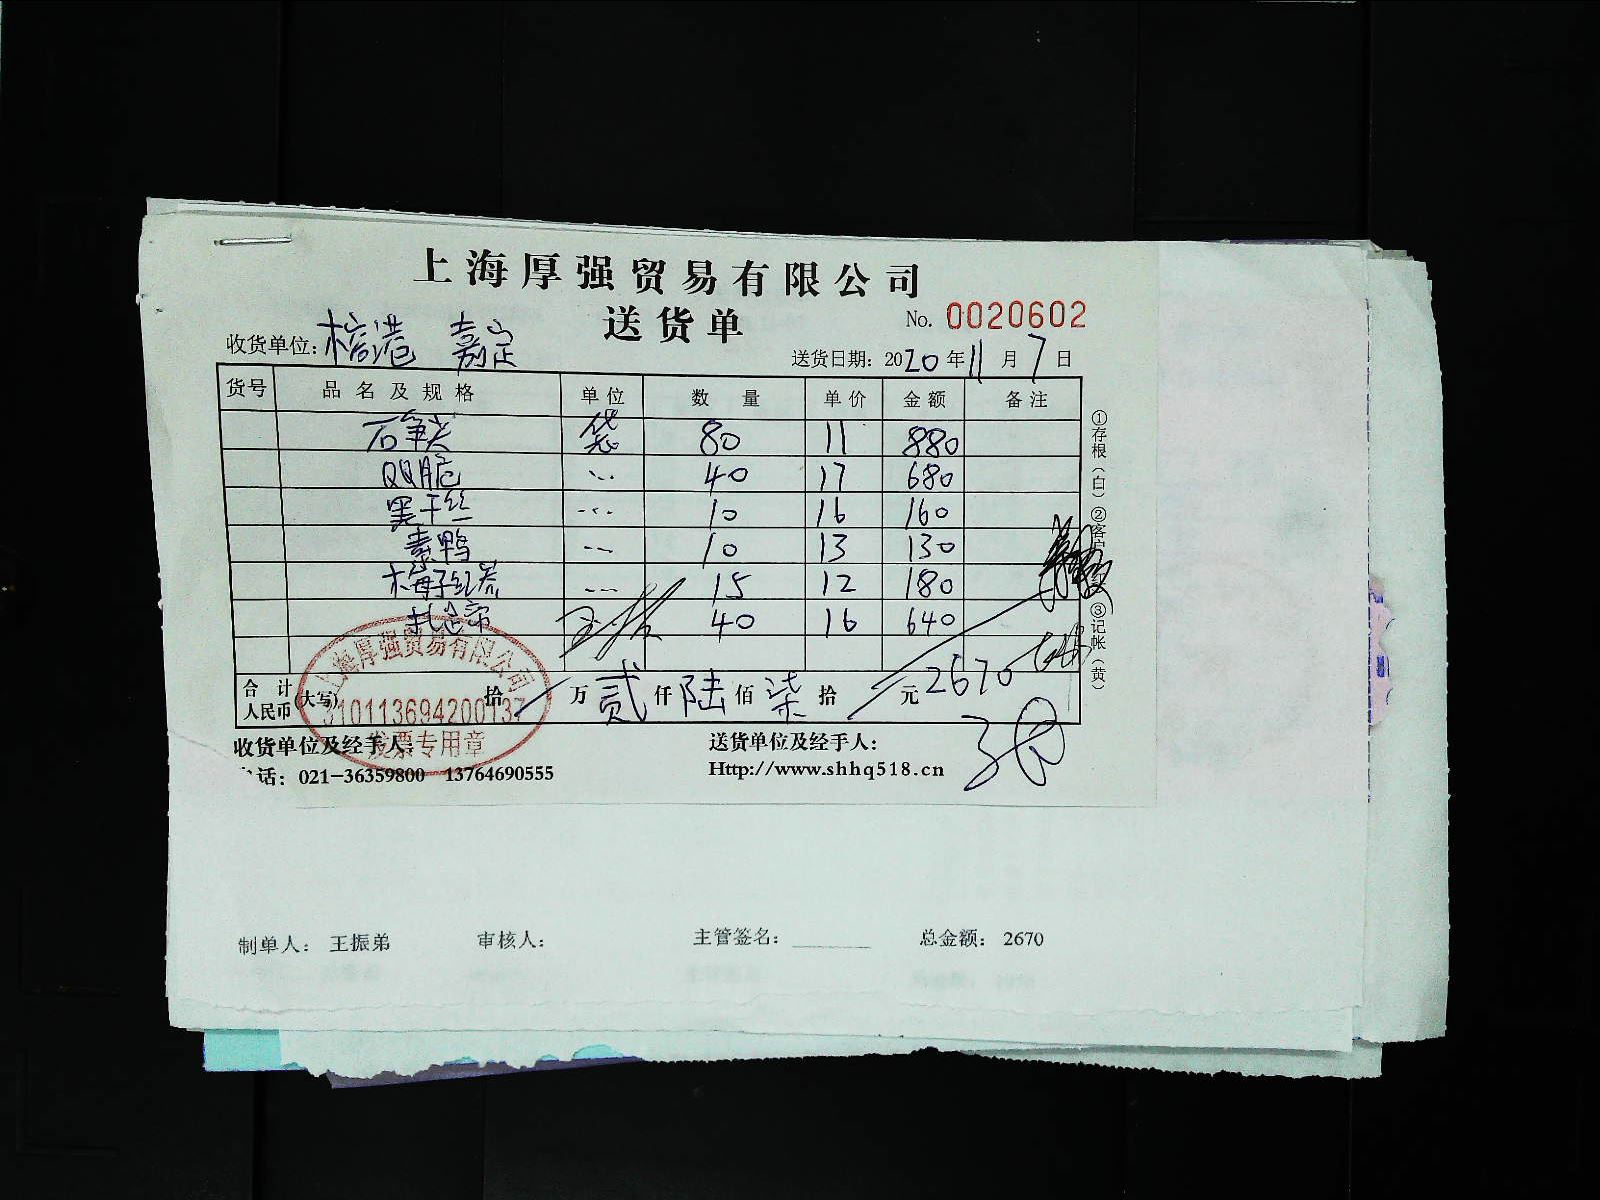 上海厚强贸易有限公司
送货单
No. 0020602
收货单位: 榕港 嘉定
送货日期: 2020年11月7日
货号 品名及规格 单位 数量 单价 金额 备注
石笋尖 袋 80 11 880
QQ脆 40 17 680
黑干丝 10 16 160
素鸭 10 13 130
梅子 15 12 180
40 16 640
合计人民币(大写) 拾 万 贰 仟 陆 佰 柒 拾 元 2670
上海厚强贸易有限公司
310113694200137
发票专用章
收货单位及经手人:
送货单位及经手人:
电话: 021-36359800 13764690555
Http://www.shhq518.cn
①存根(白)②客户(红)③记帐(黄)
制单人: 王振弟 审核人: 主管签名: 总金额: 2670